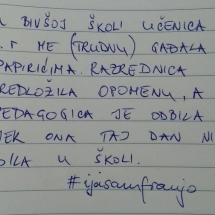 U BIVŠOJ ŠKOLI UČENICA
ME (TRUDNU) GAĐALA
PAPIRIĆIMA. RAZREDNICA
PREDLOŽILA OPOMENU, A
PEDAGOGICA JE ODBILA
JER ONA TAJ DAN NI
BILA U ŠKOLI.
#ijasamfranjo